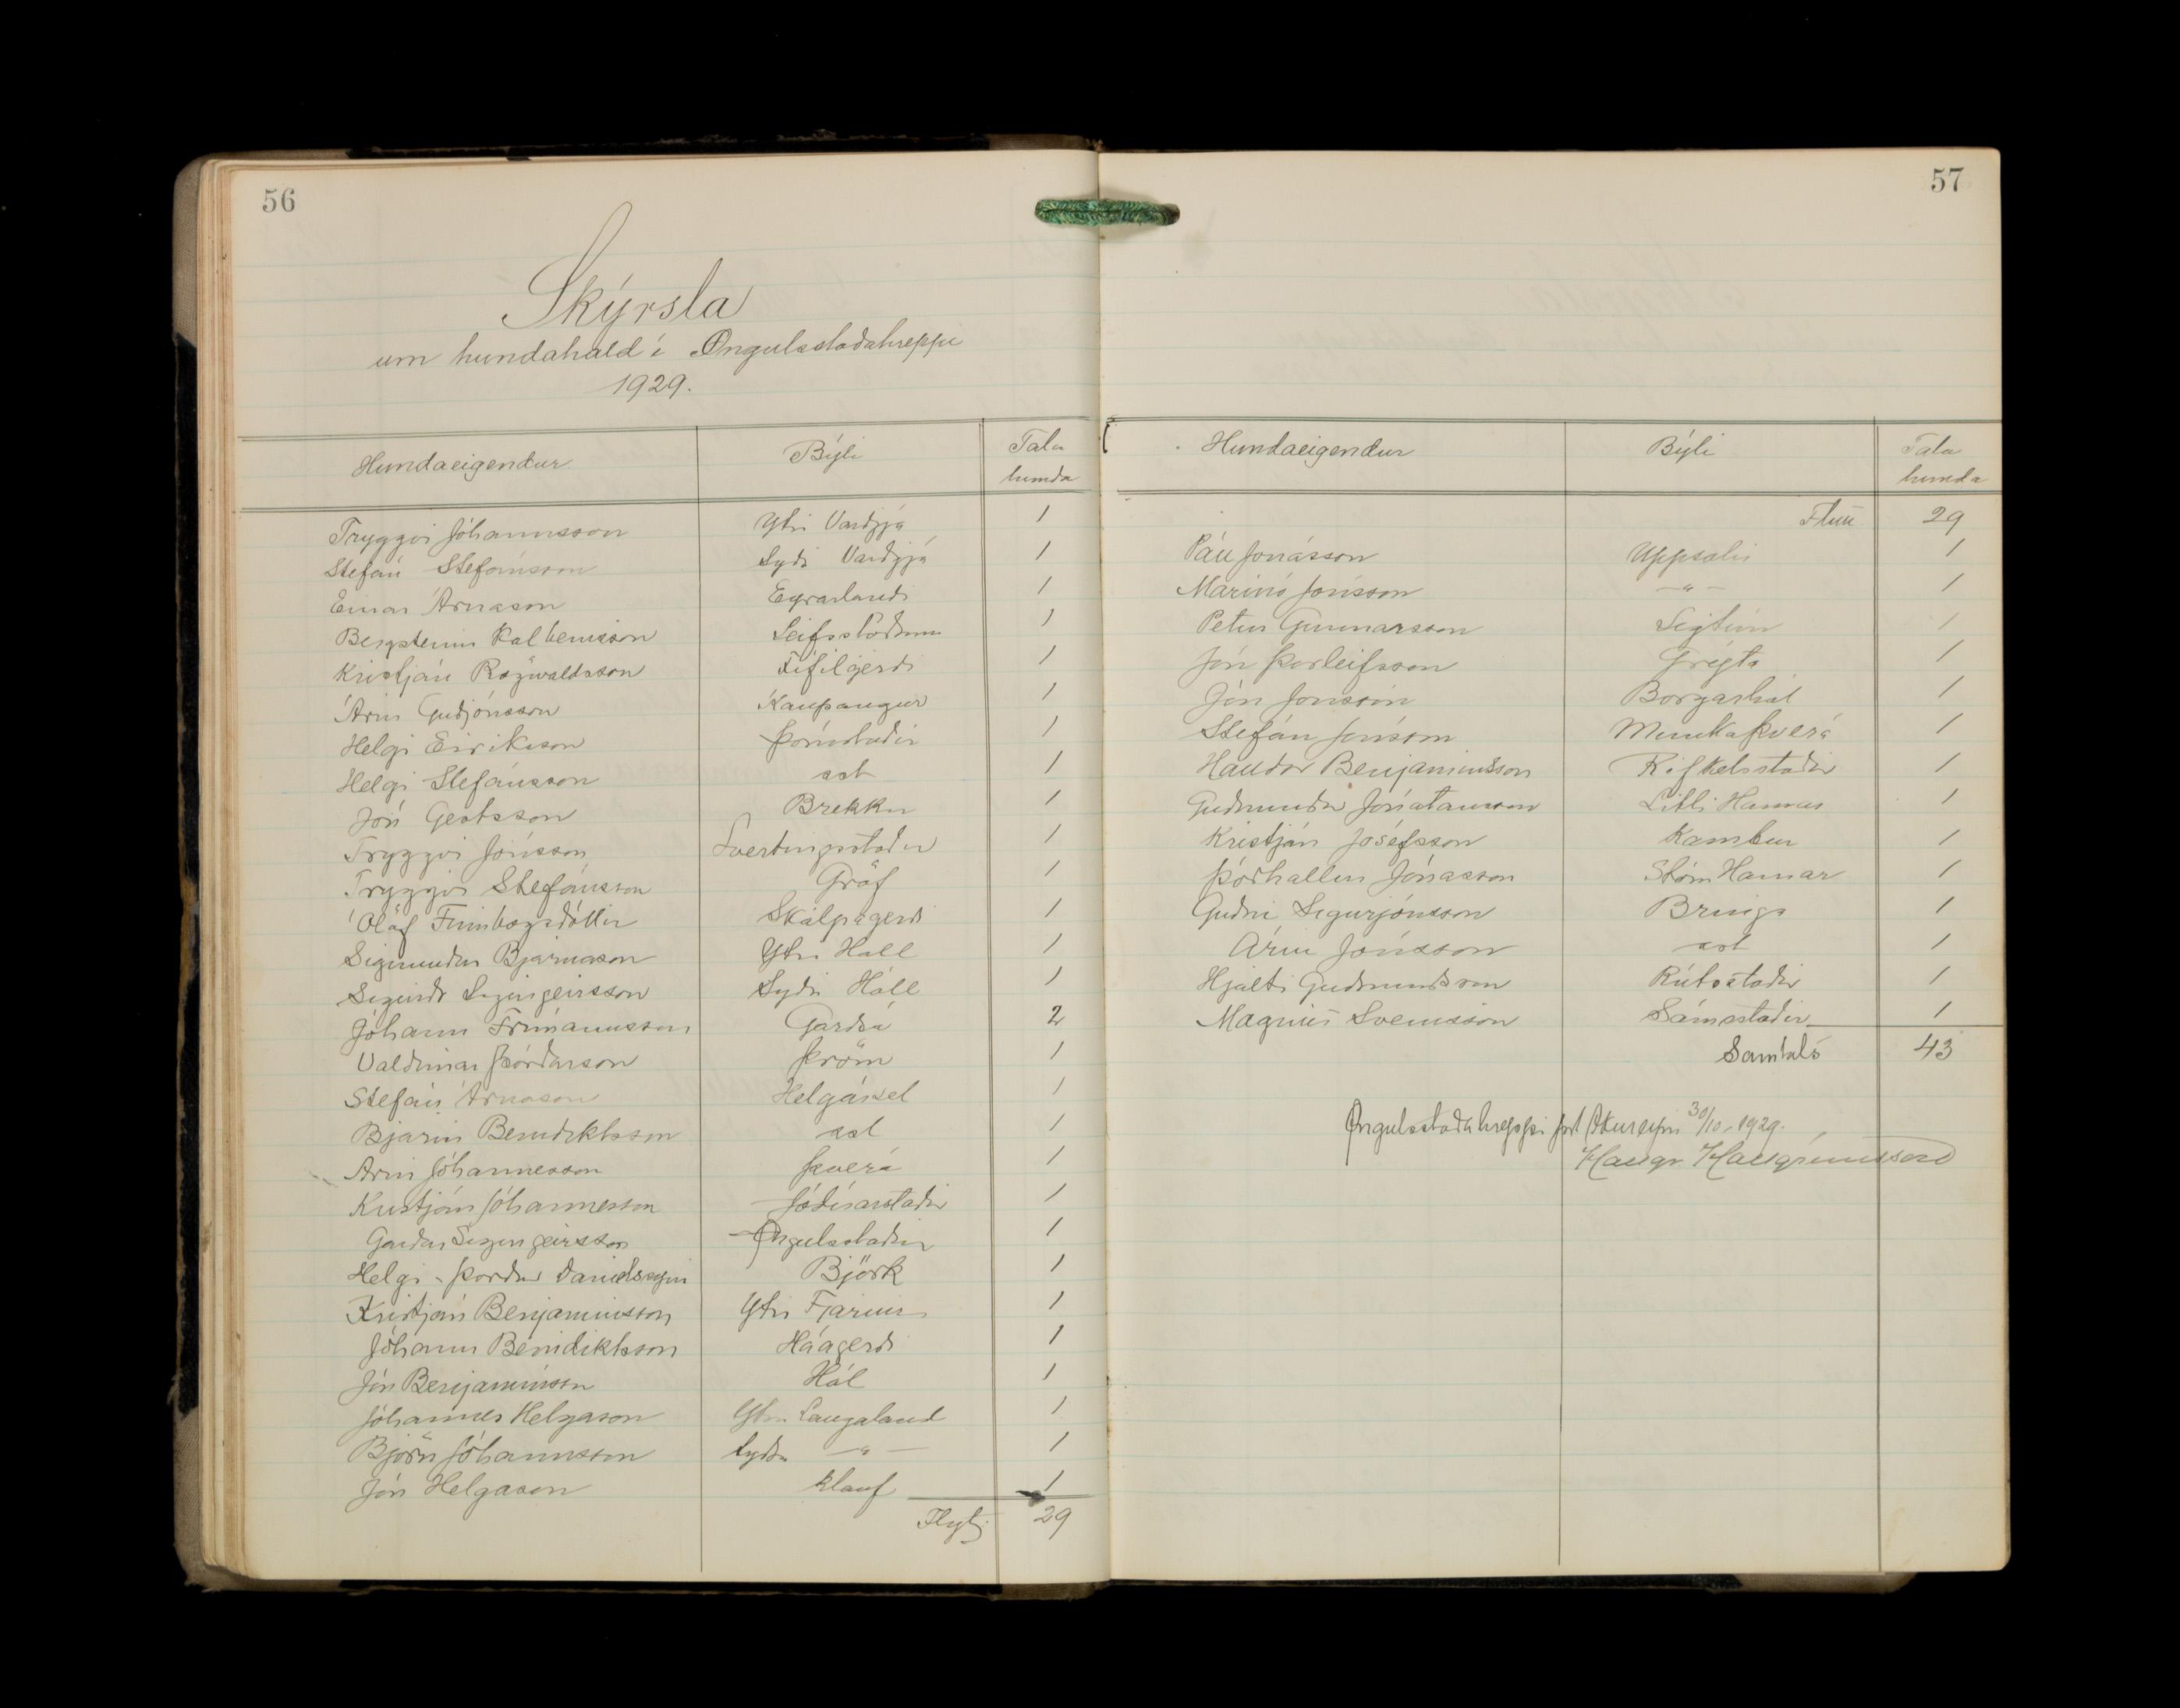 56
Skýrsla
um hundahald í Öngulsstaðahreppi
1929.
Hundaeigendur Býli Tala hunda
Tryggvi Jóhannsson Ytri Varðgjá 1
Stefán Stefánsson Syðri Varðgjá 1
Einar Árnason Eyrarlandi 1
Bergsteinn Kolbeinsson Leifsstöðum 1
Kristján Rögnvaldsson Fífilgerði 1
Árni Guðjónsson Kaupangur 1
Helgi Eiríksson Þórustaðir 1
Helgi Stefánsson sst 1
Jón Gestsson Brekku 1
Tryggvi Jónsson Svertingsstaðir 1
Tryggvi Stefánsson Gröf 1
Ólöf Finnbogadóttir Skálpagerði 1
Sigmundur Bjarnason Ytri Hóll 1
Sigurður Sigurgeirsson Syðri Hóll 1
Jóhann Frímannsson Garðsá 2
Valdimar Þórðarson Þröm 1
Stefán Árnason Helgársel 1
Bjarni Benediktsson sst 1
Árni Jóhannesson Þverá 1
Kristján Jóhannesson Jódísarstaðir 1
Garðar Sigurgeirsson Öngulsstaðir 1
Helgi - Þórður Daníelssynir Björk 1
Kristján Benjamínsson Ytri Tjarnir 1
Jóhann Benediktsson Háagerði 1
Jón Benjamínsson Hól 1
Jóhannes Helgason Ytra Laugaland 1
Björn Jóhannsson Syðra —"— 1
Jón Helgason Klauf 1
Flyt: 29
57
Hundaeigendur Býli Tala hunda
Flutt 29
Páll Jónasson Uppsalir 1
Marinó Jónsson —"— 1
Petur Gunnarsson Sigtún 1
Jón Þorleifsson Grýta 1
Jón Jónsson Borgarhól 1
Stefán Jónsson Munkaþverá 1
Halldór Benjamínsson Rifkelsstaðir 1
Guðmundur Jónatansson Litli Hamar 1
Kristján Jósefsson Kambur 1
Þórhallur Jónasson Stóri Hamar 1
Guðni Sigurjónsson Bringa 1
Árni Jónsson sst 1
Hjalti Guðmundsson Rútsstaðir 1
Magnús Sveinsson Sámsstaðir 1
Samtals 43
Öngulsstaðahreppi pst Akureyri 30/10 - 1929.
Hallgr. Hallgrímsson